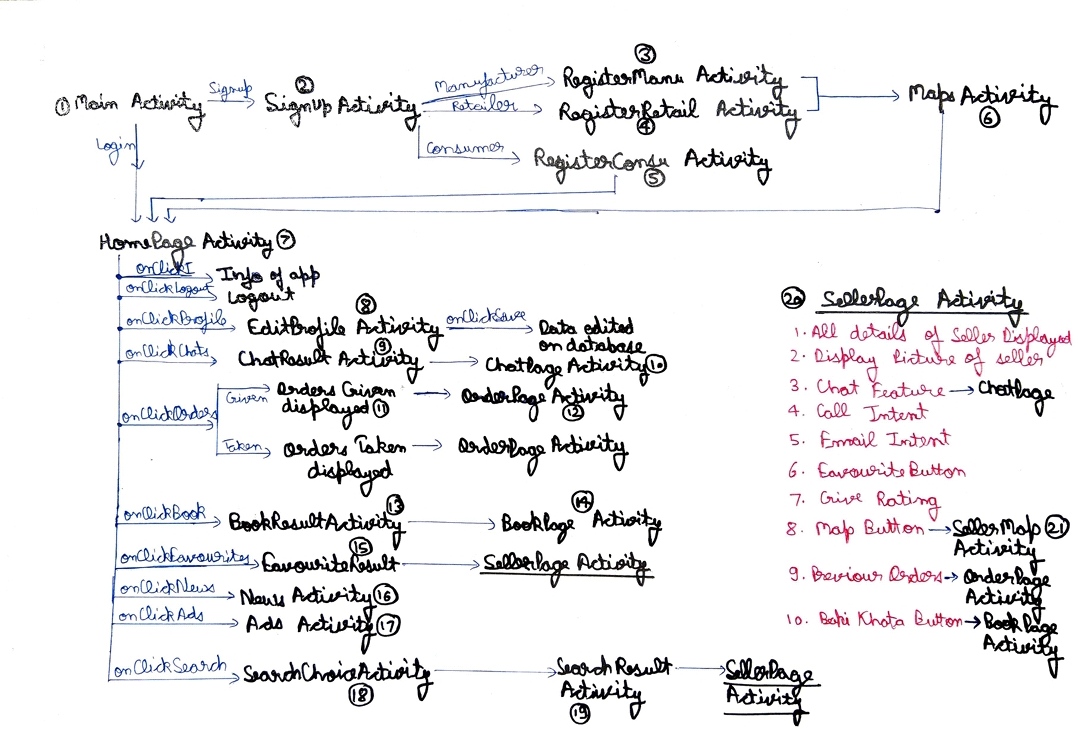 ③
② Manufacturer RegisterManu Activity
① Main Activity Signup SignUp Activity Retailer RegisterRetail Activity ④ Maps Activity ⑥
Login Consumer RegisterConsu Activity ⑤
HomePage Activity ⑦
onClickI Info of app
onClickLogout Logout
onClickProfile EditProfile Activity ⑧ onClickSave Data edited
on database
onClickChats ChatResult Activity ⑨ ChatPage Activity ⑩
onClickOrders
Given Orders Given
displayed ⑪ OrderPage Activity ⑫
Taken Orders Taken
displayed OrderPage Activity
onClickBook BookResultActivity ⑬ BookPage Activity ⑭
onClickFavourites FavouriteResult ⑮ SellerPage Activity
onClickNews News Activity ⑯
onClickAds Ads Activity ⑰
onClickSearch SearchChoiceActivity ⑱ SearchResult
Activity ⑲ SellerPage
Activity
⑳ SellerPage Activity
1. All details of Seller Displayed
2. Display Picture of seller
3. Chat Feature → ChatPage
4. Call Intent
5. Email Intent
6. Favourite Button
7. Give Rating
8. Map Button → SellerMap ㉑
Activity
9. Previous Orders → OrderPage
Activity
10. Bahi Khata Button → BookPage
Activity